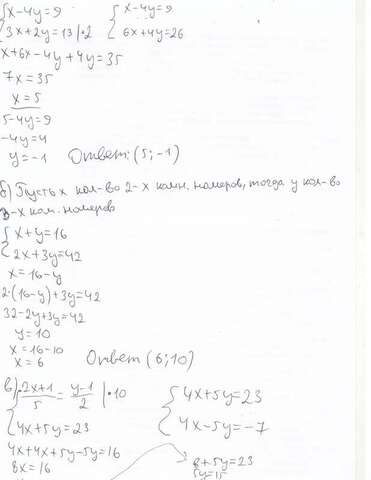 {x-4y=9 {x-4y=9
{3x+2y=13 |·2 {6x+4y=26
x+6x-4y+4y=35
7x=35
x=5
5-4y=9
-4y=4
y=-1 Ответ: (5;-1)
б) Пусть x кол-во 2-х комн. номеров, тогда y кол-во
3-х ком. номеров
{x+y=16
{2x+3y=42
x=16-y
2·(16-y)+3y=42
32-2y+3y=42
y=10
x=16-10
x=6 Ответ (6;10)
в) {2x+1/5=y-1/2 |·10 {4x+5y=23
{4x+5y=23 {4x-5y=-7
4x+4x+5y-5y=16
8x=16 8+5y=23
5y=15